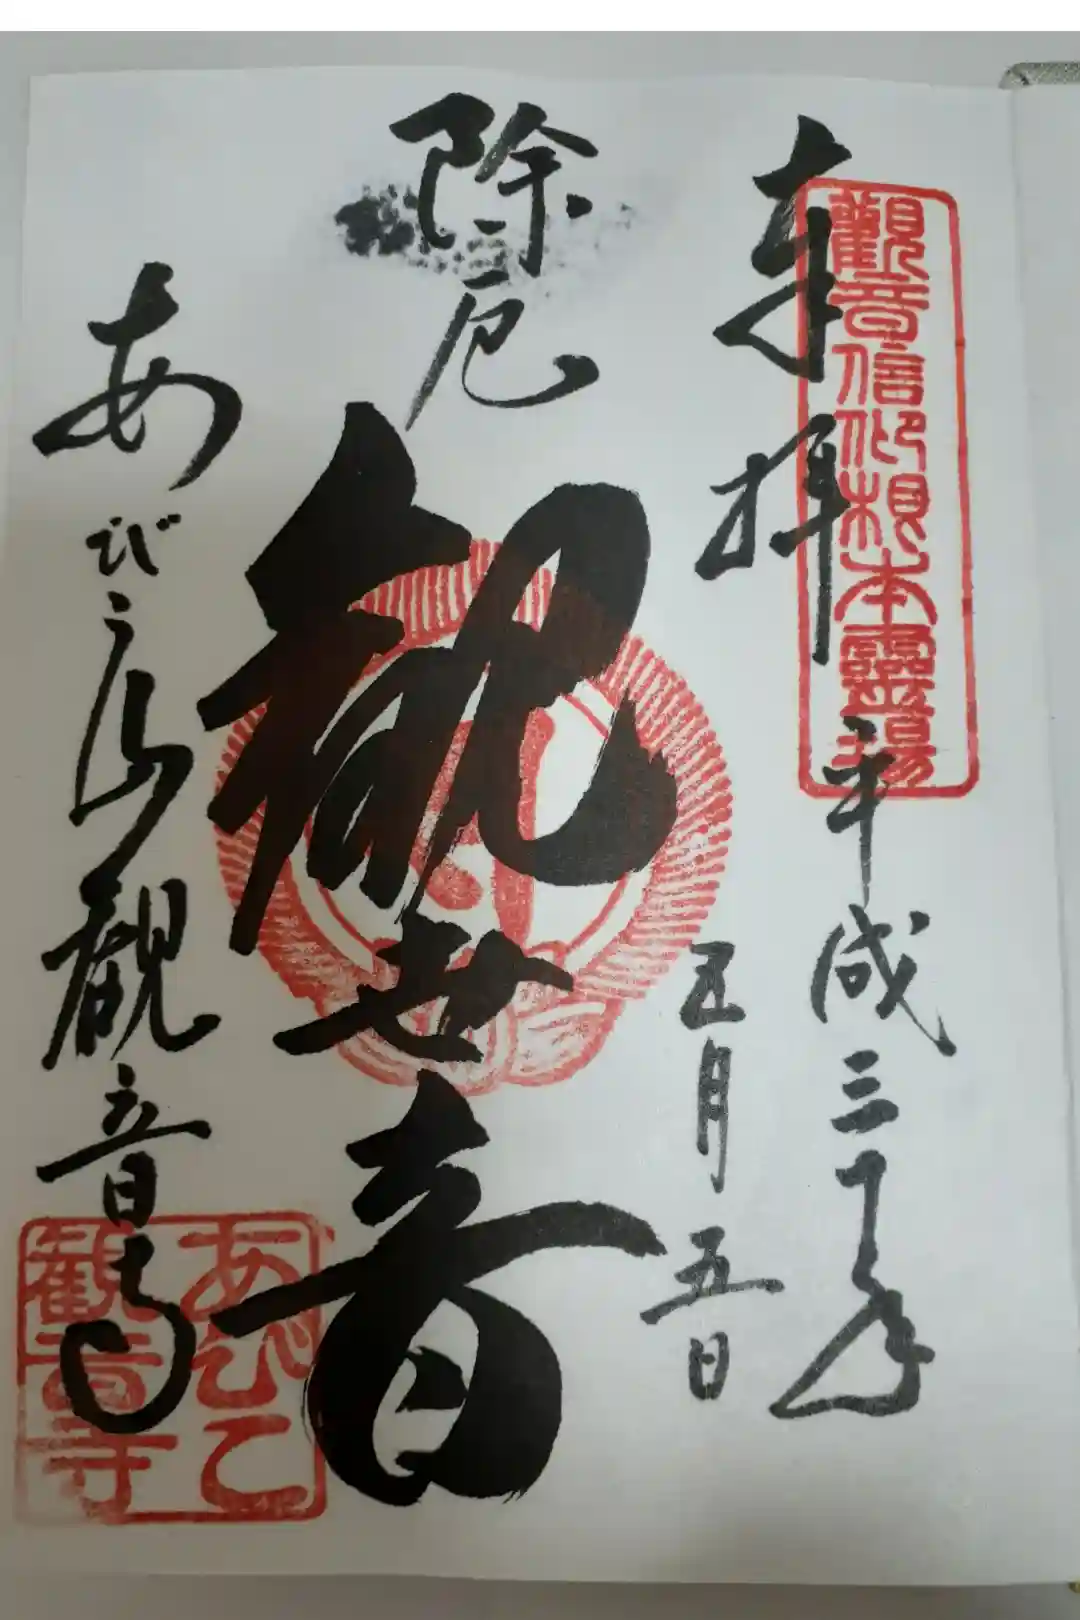 觀音信仰根本靈場
奉拝
平成三十年
五月五日
除厄
観世音
あびこ山観音寺
あびこ
観音寺